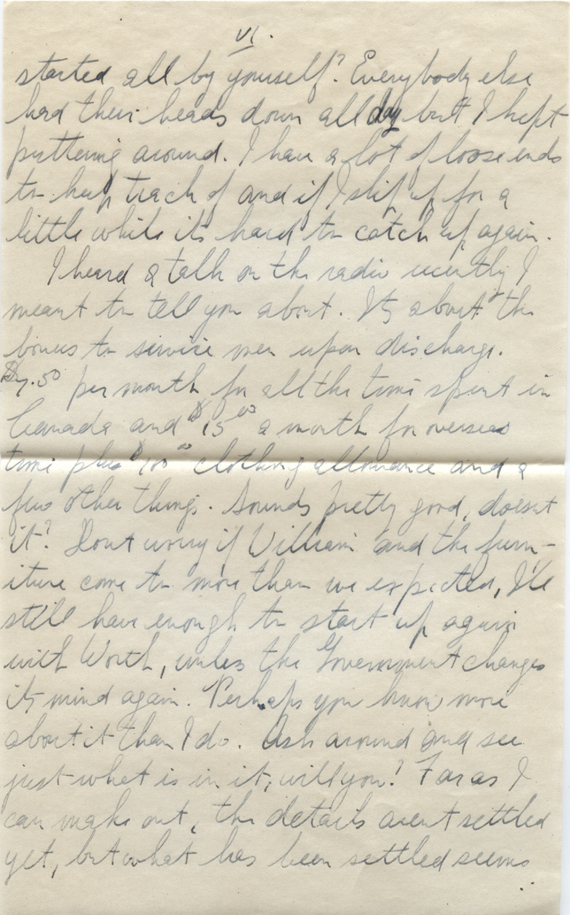 VI.
started all by youself? Everybody else
had their heads down all day but I kept
puttering around. I have a lot of loose ends
to keep track of and if I slip up for a
little while it's hard to catch up again.
I heard a talk on the radio recently I
meant to tell you about. Its about the
bonus to service men upon discharge.
$7.50 per month for all the time spent in
Canada and $15.00 a month for overseas
time plus $100.00 clothing allowance and a
few other things. Sounds pretty good, doesnt
it? Dont worry if William and the furn-
iture come to more than we expected, I'll
still have enough to start up again
with Worth, unless the Government changes
its mind again. Perhaps you know more
about it than I do. Ask around and see
just what is in it, will you? Far as I
can make out, the details arent settled
yet, but what has been settled seems